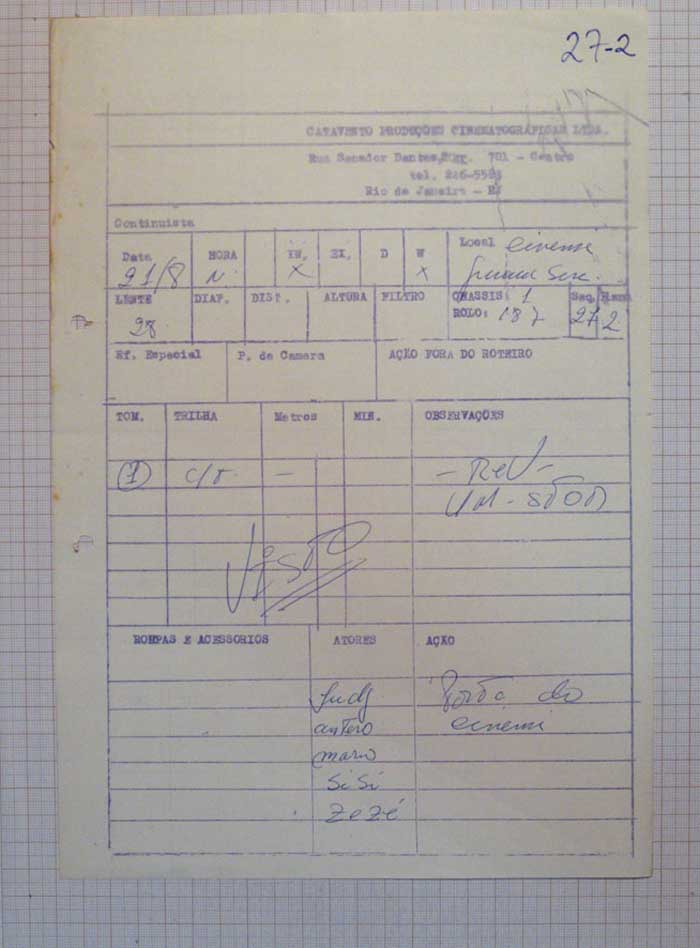 27-2
CATAVENTO PRODUÇÕES CINEMATOGRAFICAS LTDA.
Rua Senador Dantas, 701 - Centro
tel. 226-5523
Rio de Janeiro - RJ
Continuista
Data HORA IN. EX. D N Local cinema
21/8 N. X X
LENTE DIAF. DIST. ALTURA FILTRO CHASSIS: 1 Seq. Plano
28 ROLO: 187 27 2
Ef. Especial P. de Camera AÇÃO FORA DO ROTEIRO
TOM. TRILHA Metros MIN. OBSERVAÇÕES
1 -
VISTO
ROUPAS E ACESSORIOS ATORES AÇÃO
Judy Porta do
antero cinema
mario
Sisi
Zezé